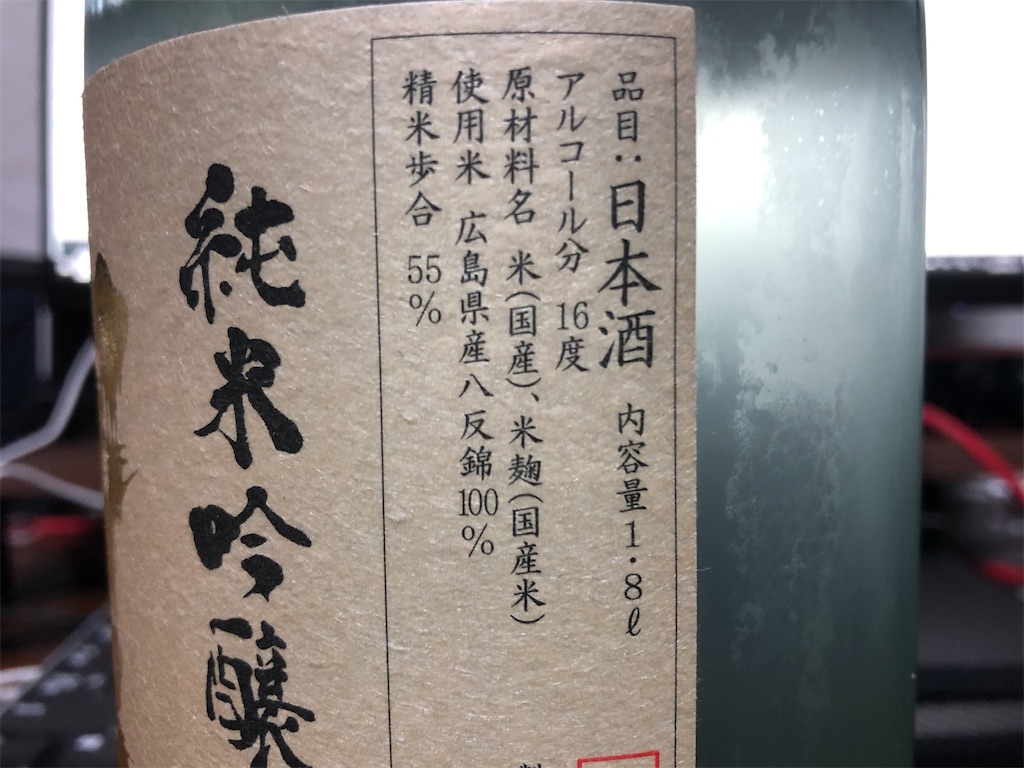 品目:日本酒 内容量1・8ℓ
アルコール分 16度
原材料名 米(国産)、米麹(国産米)
使用米 広島県産八反錦100%
精米歩合 55%
純米吟醸